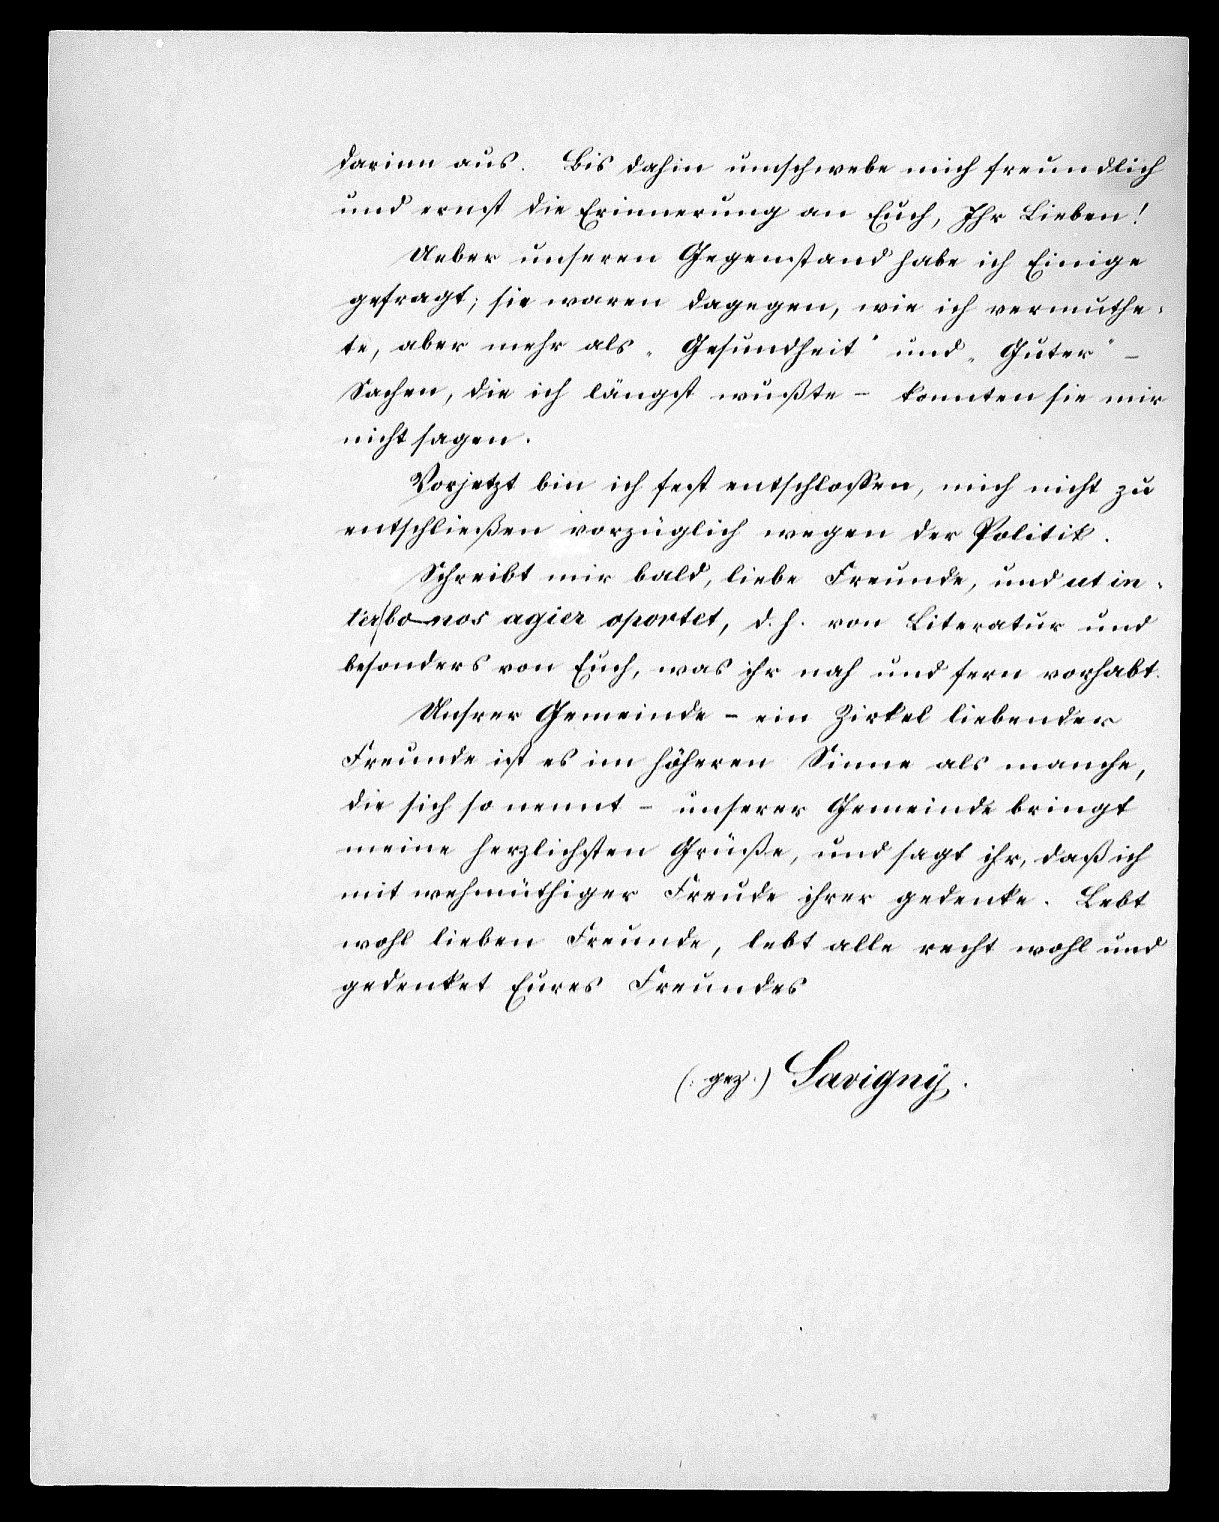 darinn aus. Bis dahin umschwebe mich freundlich
und ernst die Erinnerung an Euch, Ihr Lieben!
Ueber unseren Gegenstand habe ich Einige
gefragt; sie waren dagegen, wie ich vermuthe-
te, aber mehr als „Gesundheit" und „Güter" –
Sachen, die ich längst wußte – konnten sie mir
nicht sagen.
Vorjetzt bin ich fest entschlossen, mich nicht zu
entschließen vorzüglich wegen der Politik.
Schreibt mir bald, liebe Freunde, und ut in-
ter bonos agier oportet, d. h. von Literatur und
besonders von Euch, was ihr nah und fern vorhabt.
Unsrer Gemeinde – ein Zirkel liebender
Freunde ist es im höheren Sinne als manche,
die sich so nennt – unserer Gemeinde bringt
meine herzlichsten Grüße, und sagt ihr, daß ich
mit wehmüthiger Freude ihrer gedenke. Lebt
wohl lieben Freunde, lebt alle recht wohl und
gedenket Eures Freundes
(: gez :) Savigny.